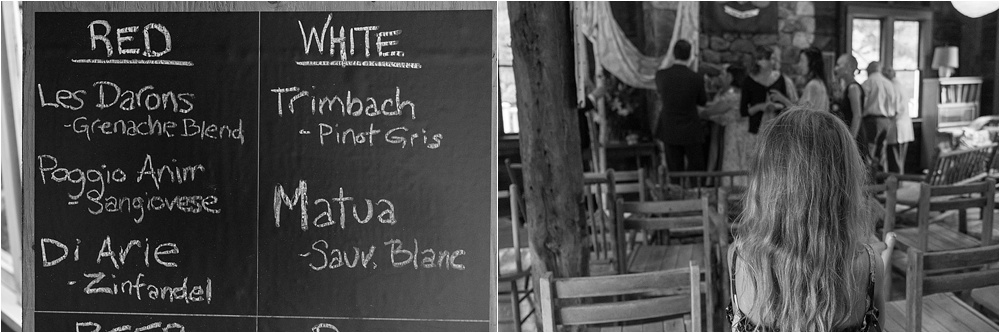 RED
Les Darons
-Grenache Blend
Poggio Anim
-Sangiovese
Di Arie
-Zinfandel
WHITE
Trimbach
-Pinot Gris
Matua
-Sauv. Blanc